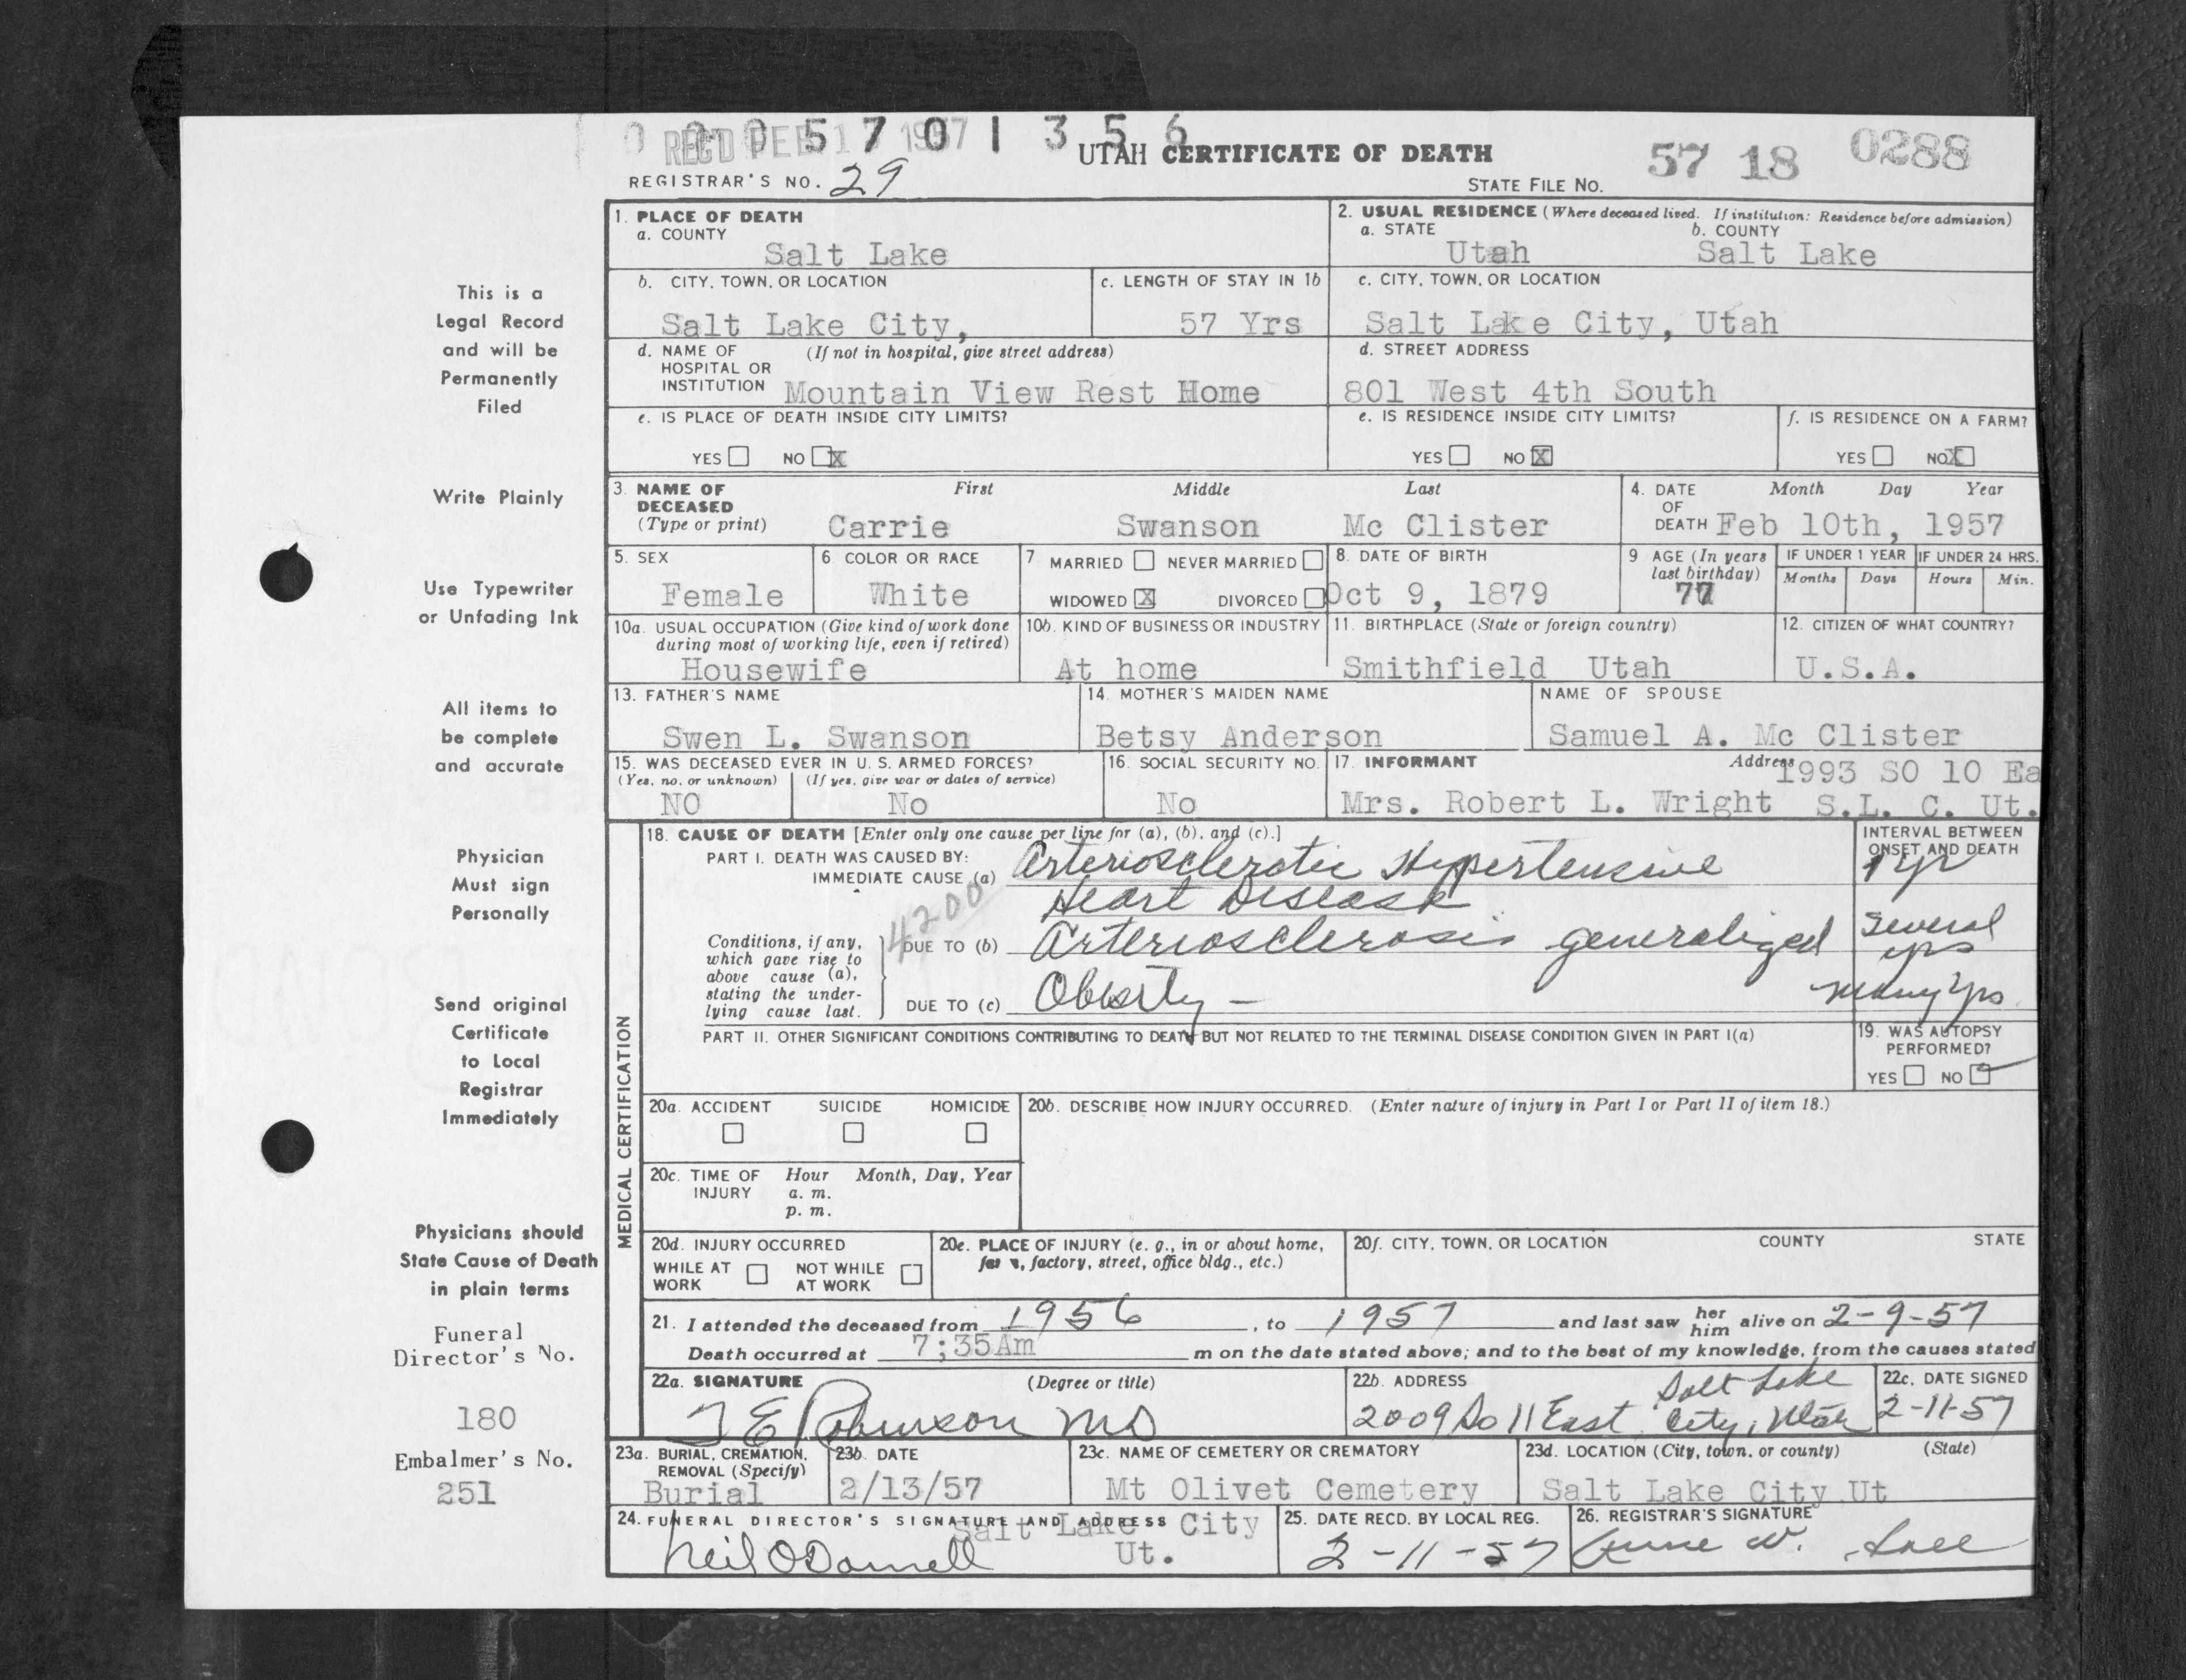 REC'D FEB 17 1957
5 7 0 1 3 5 6
UTAH CERTIFICATE OF DEATH
57 18 0288
REGISTRAR'S NO. 29
STATE FILE NO.
1. PLACE OF DEATH
a. COUNTY
Salt Lake
2. USUAL RESIDENCE (Where deceased lived. If institution: Residence before admission)
a. STATE b. COUNTY
Utah Salt Lake
b. CITY, TOWN, OR LOCATION
Salt Lake City,
c. LENGTH OF STAY IN 1b
57 Yrs
c. CITY, TOWN, OR LOCATION
Salt Lake City, Utah
d. NAME OF (If not in hospital, give street address)
HOSPITAL OR
INSTITUTION Mountain View Rest Home
d. STREET ADDRESS
801 West 4th South
e. IS PLACE OF DEATH INSIDE CITY LIMITS?
YES NO X
e. IS RESIDENCE INSIDE CITY LIMITS?
YES NO X
f. IS RESIDENCE ON A FARM?
YES NO X
3. NAME OF First Middle Last
DECEASED
(Type or print) Carrie Swanson Mc Clister
4. DATE Month Day Year
OF
DEATH Feb 10th, 1957
5. SEX
Female
6 COLOR OR RACE
White
7 MARRIED NEVER MARRIED
WIDOWED X DIVORCED
8. DATE OF BIRTH
Oct 9, 1879
9 AGE (In years
last birthday)
77
IF UNDER 1 YEAR
Months Days
IF UNDER 24 HRS.
Hours Min.
10a. USUAL OCCUPATION (Give kind of work done
during most of working life, even if retired)
Housewife
10b. KIND OF BUSINESS OR INDUSTRY
At home
11. BIRTHPLACE (State or foreign country)
Smithfield Utah
12. CITIZEN OF WHAT COUNTRY?
U.S.A.
13. FATHER'S NAME
Swen L. Swanson
14. MOTHER'S MAIDEN NAME
Betsy Anderson
NAME OF SPOUSE
Samuel A. Mc Clister
15. WAS DECEASED EVER IN U. S. ARMED FORCES?
(Yes, no, or unknown) (If yes, give war or dates of service)
NO No
16. SOCIAL SECURITY NO.
No
17. INFORMANT Address 1993 SO 10 Ea
Mrs. Robert L. Wright S.L. C. Ut.
MEDICAL CERTIFICATION
18. CAUSE OF DEATH [Enter only one cause per line for (a), (b), and (c).]
PART I. DEATH WAS CAUSED BY:
IMMEDIATE CAUSE (a) Arteriosclerotic Hypertensive
Heart Disease
INTERVAL BETWEEN
ONSET AND DEATH
1 yr
4200
Conditions, if any,
which gave rise to
above cause (a),
stating the under-
lying cause last.
DUE TO (b) Arteriosclerosis generalized
several
yrs
DUE TO (c) Obesity -
many yrs
PART II. OTHER SIGNIFICANT CONDITIONS CONTRIBUTING TO DEATH BUT NOT RELATED TO THE TERMINAL DISEASE CONDITION GIVEN IN PART I(a)
19. WAS AUTOPSY
PERFORMED?
YES NO
20a. ACCIDENT SUICIDE HOMICIDE
20b. DESCRIBE HOW INJURY OCCURRED. (Enter nature of injury in Part I or Part II of item 18.)
20c. TIME OF Hour Month, Day, Year
INJURY a. m.
p. m.
20d. INJURY OCCURRED
WHILE AT NOT WHILE
WORK AT WORK
20e. PLACE OF INJURY (e. g., in or about home,
factory, street, office bldg., etc.)
20f. CITY, TOWN, OR LOCATION COUNTY STATE
21. I attended the deceased from 1956, to 1957 and last saw her him alive on 2-9-57
Death occurred at 7;35Am m on the date stated above; and to the best of my knowledge, from the causes stated
22a. SIGNATURE (Degree or title)
T E Robinson MD
22b. ADDRESS
2009 So 11 East Salt Lake City, Utah
22c. DATE SIGNED
2-11-57
23a. BURIAL, CREMATION,
REMOVAL (Specify)
Burial
23b. DATE
2/13/57
23c. NAME OF CEMETERY OR CREMATORY
Mt Olivet Cemetery
23d. LOCATION (City, town, or county) (State)
Salt Lake City Ut
24. FUNERAL DIRECTOR'S SIGNATURE AND ADDRESS
Salt Lake City
Neil O'Donnell Ut.
25. DATE RECD. BY LOCAL REG.
2-11-57
26. REGISTRAR'S SIGNATURE
This is a
Legal Record
and will be
Permanently
Filed
Write Plainly
Use Typewriter
or Unfading Ink
All items to
be complete
and accurate
Physician
Must sign
Personally
Send original
Certificate
to Local
Registrar
Immediately
Physicians should
State Cause of Death
in plain terms
Funeral
Director's No.
180
Embalmer's No.
251